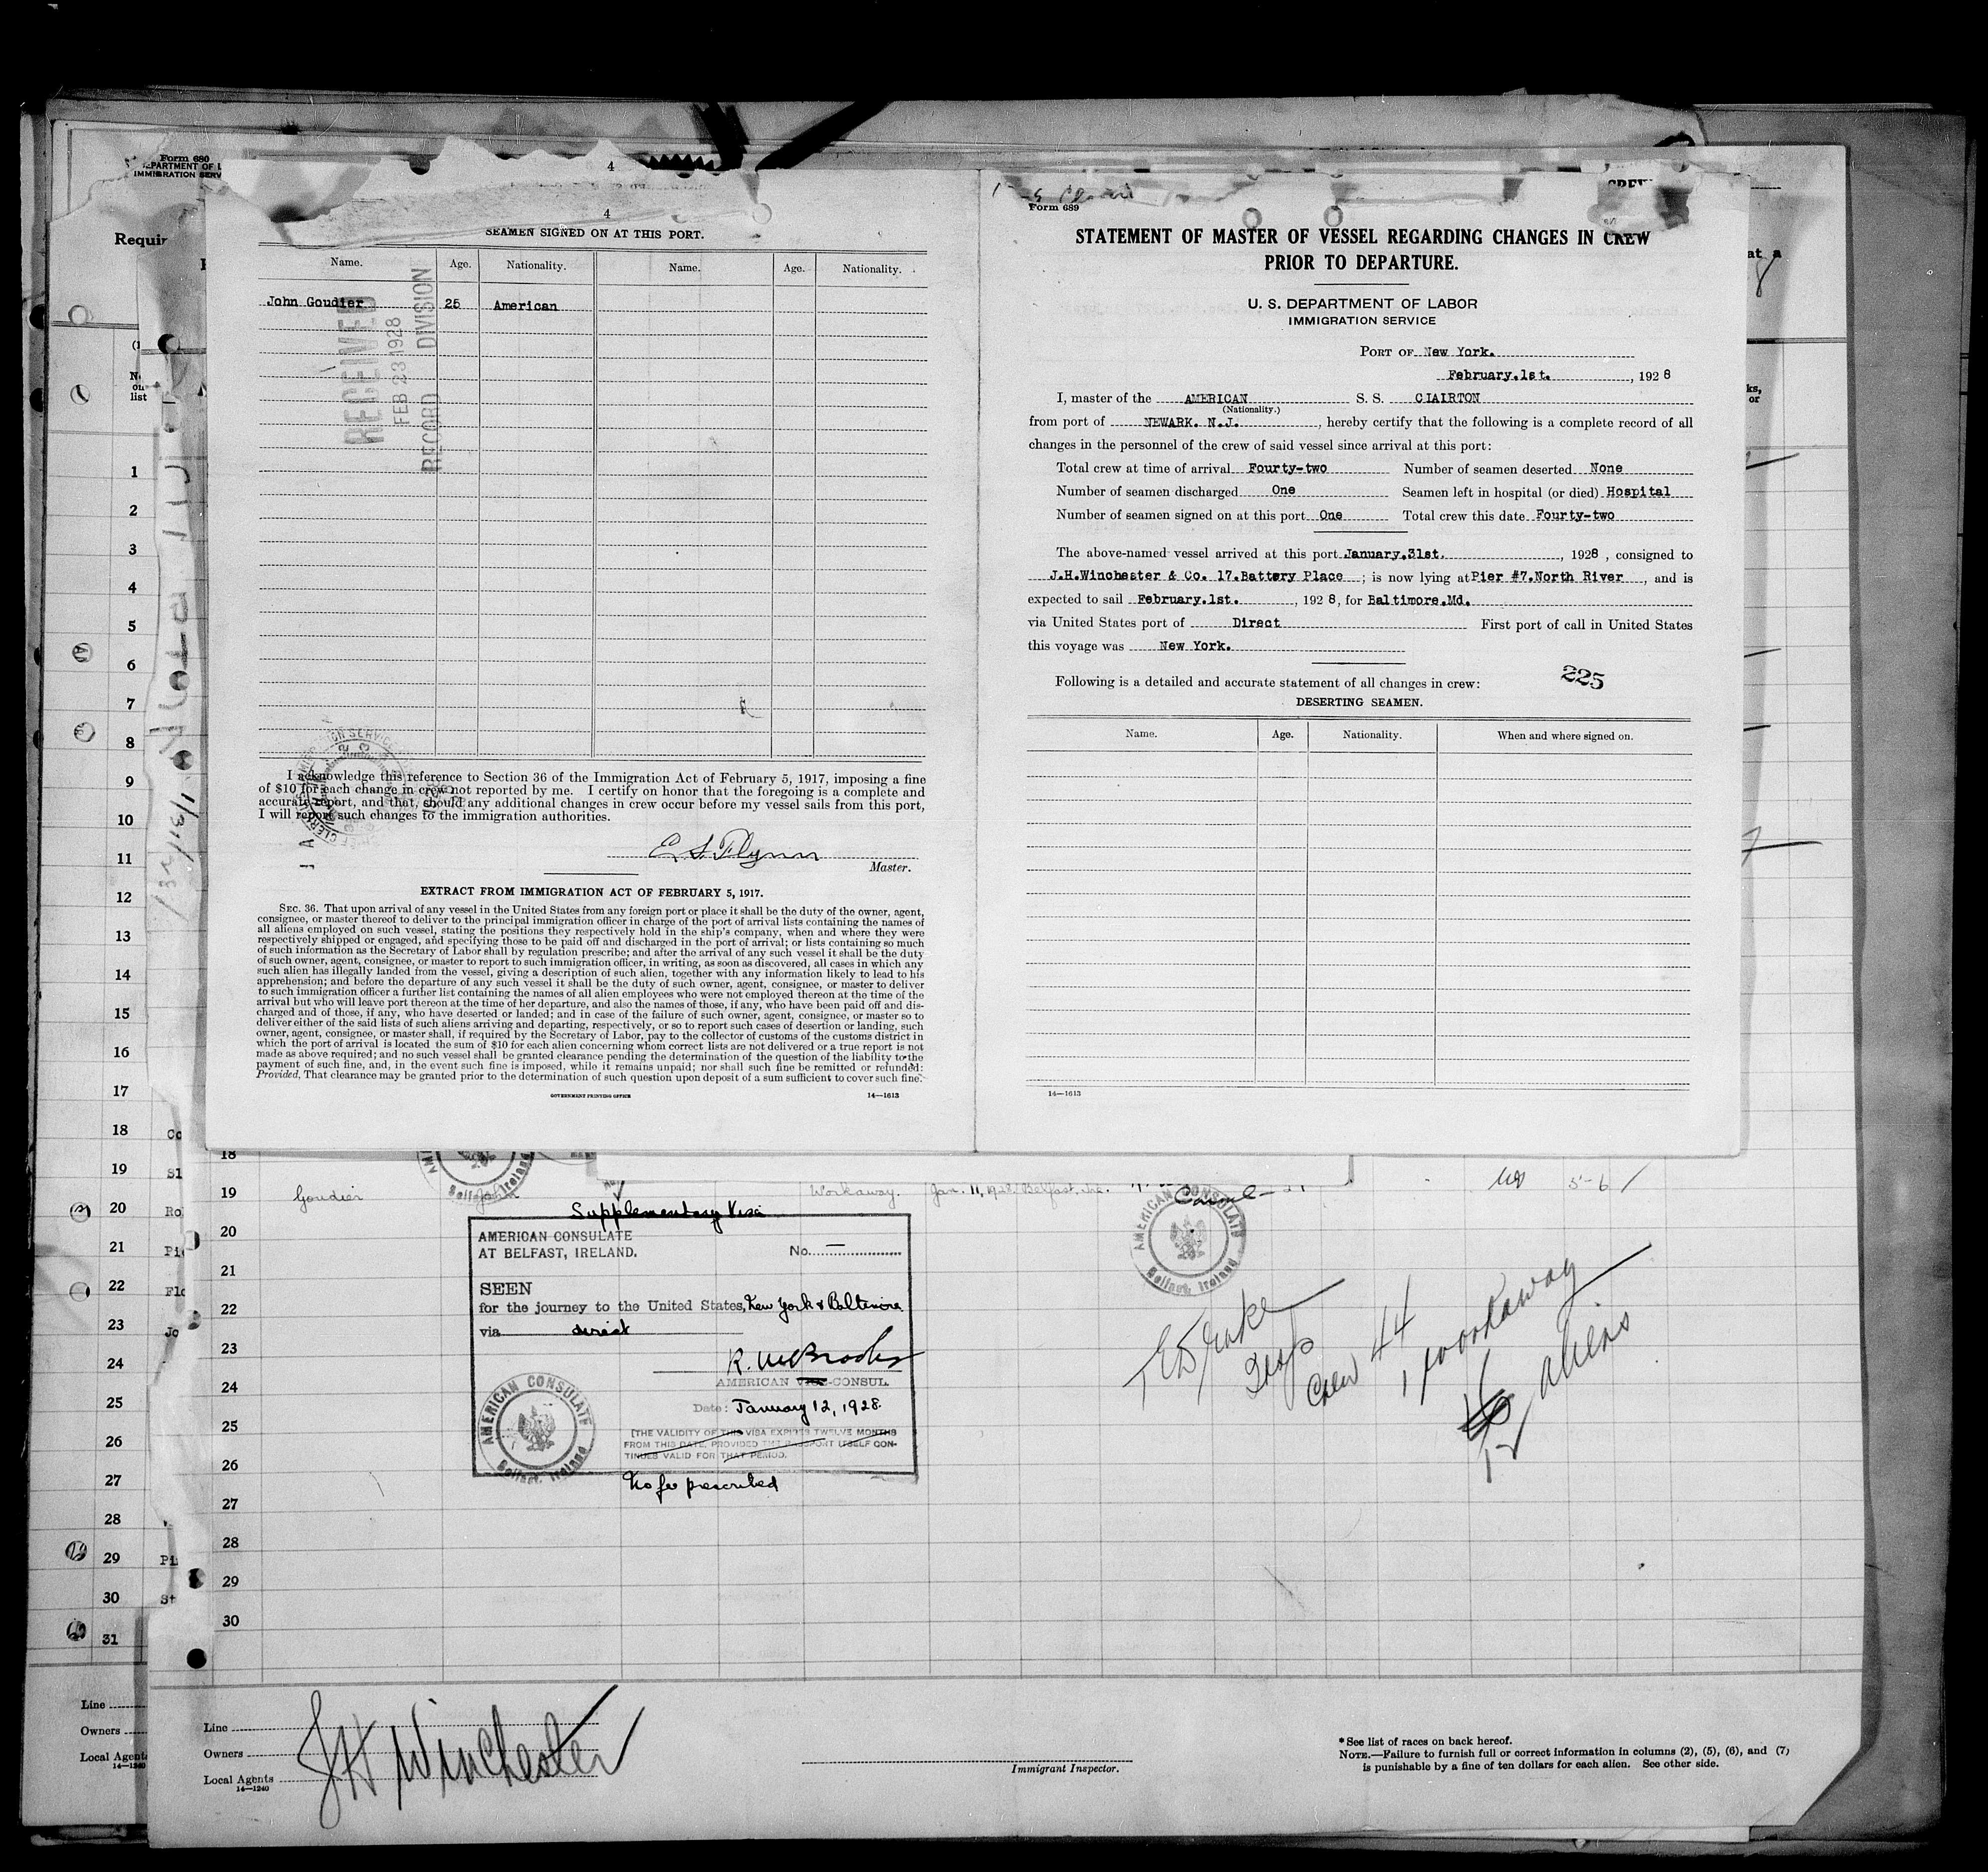 Form 680
IMMIGRATION SERV
Requir
4
4
SEAMEN SIGNED ON AT THIS PORT.
Name. Age. Nationality. Name. Age. Nationality.
John Goudier 25 American
RECEIVED
FEB 23 1928
RECORD DIVISION
I acknowledge this reference to Section 36 of the Immigration Act of February 5, 1917, imposing a fine
of $10 for each change in crew not reported by me. I certify on honor that the foregoing is a complete and
accurate report, and that, should any additional changes in crew occur before my vessel sails from this port,
I will report such changes to the immigration authorities.
E. S. Flynn
Master.
EXTRACT FROM IMMIGRATION ACT OF FEBRUARY 5, 1917.
SEC. 36. That upon arrival of any vessel in the United States from any foreign port or place it shall be the duty of the owner, agent,
consignee, or master thereof to deliver to the principal immigration officer in charge of the port of arrival lists containing the names of
all aliens employed on such vessel, stating the positions they respectively hold in the ship's company, when and where they were
respectively shipped or engaged, and specifying those to be paid off and discharged in the port of arrival; or lists containing so much
of such information as the Secretary of Labor shall by regulation prescribe; and after the arrival of any such vessel it shall be the duty
of such owner, agent, consignee, or master to report to such immigration officer, in writing, as soon as discovered, all cases in which any
such alien has illegally landed from the vessel, giving a description of such alien, together with any information likely to lead to his
apprehension; and before the departure of any such vessel it shall be the duty of such owner, agent, consignee, or master to deliver
to such immigration officer a further list containing the names of all alien employees who were not employed thereon at the time of the
arrival but who will leave port thereon at the time of her departure, and also the names of those, if any, who have been paid off and dis-
charged and of those, if any, who have deserted or landed; and in case of the failure of such owner, agent, consignee, or master so to
deliver either of the said lists of such aliens arriving and departing, respectively, or so to report such cases of desertion or landing, such
owner, agent, consignee, or master shall, if required by the Secretary of Labor, pay to the collector of customs of the customs district in
which the port of arrival is located the sum of $10 for each alien concerning whom correct lists are not delivered or a true report is not
made as above required; and no such vessel shall be granted clearance pending the determination of the question of the liability to the
payment of such fine, and, in the event such fine is imposed, while it remains unpaid; nor shall such fine be remitted or refunded:
Provided, That clearance may be granted prior to the determination of such question upon deposit of a sum sufficient to cover such fine.
GOVERNMENT PRINTING OFFICE 14—1613
Form 689
STATEMENT OF MASTER OF VESSEL REGARDING CHANGES IN CREW
PRIOR TO DEPARTURE.
U. S. DEPARTMENT OF LABOR
IMMIGRATION SERVICE
PORT OF New York.
February.1st., 1928
I, master of the AMERICAN S. S. CIAIRTON
(Nationality.)
from port of NEWARK. N.J., hereby certify that the following is a complete record of all
changes in the personnel of the crew of said vessel since arrival at this port:
Total crew at time of arrival Fourty-two Number of seamen deserted None
Number of seamen discharged One Seamen left in hospital (or died) Hospital
Number of seamen signed on at this port One Total crew this date Fourty-two
The above-named vessel arrived at this port January.31st., 1928, consigned to
J.H.Winchester & Co. 17.Battery Place; is now lying at Pier #7.North River, and is
expected to sail February.1st., 1928, for Baltimore.Md.
via United States port of Direct First port of call in United States
this voyage was New York.
Following is a detailed and accurate statement of all changes in crew:
225
DESERTING SEAMEN.
Name. Age. Nationality. When and where signed on.
14—1613
1
2
3
4
5
6
7
8
9
10
11
12
13
14
15
16
17
18 Co
19 Sl
20 Ro
21 Pi
22 Flo
23 Jo
24
25
26
27
28
29 Pi
30 St
31
18
19 Goudier John Workaway. Jan. 11, 1928 Belfast, Ire. 5-6
20
21
22
23
24
25
26
27
28
29
30
Supplementary Visa
AMERICAN CONSULATE
AT BELFAST, IRELAND. No. —
SEEN
for the journey to the United States, New York & Baltimore
via direct
AMERICAN VICE-CONSUL.
Date: January 12, 1928
[THE VALIDITY OF THIS VISA EXPIRES TWELVE MONTHS
FROM THIS DATE, PROVIDED THE PASSPORT ITSELF CON-
TINUES VALID FOR THAT PERIOD.
No fee prescribed
AMERICAN CONSULATE
Belfast, Ireland
AMERICAN CONSULATE
Belfast, Ireland
Crew 44
1 workaway
aliens
Line
Owners
Local Agents
14—1240
Line
Owners
Local Agents
14—1240
J H Winchester
Immigrant Inspector.
* See list of races on back hereof.
NOTE.—Failure to furnish full or correct information in columns (2), (5), (6), and (7)
is punishable by a fine of ten dollars for each alien. See other side.